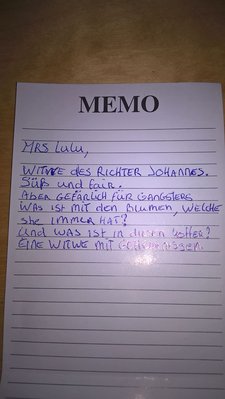 MEMO
MRS LULU,
WITWE DES RICHTER JOHANNES.
SÜß und fair.
ABER GEFÄRLICH FÜR GANGSTERS
WAS IST MIT den BLUMEN, WELCHE
she IMMER HAT?
Und WAS IST in diesen Koffer?
EINE WITWE MIT GEHEIMNISSEN.